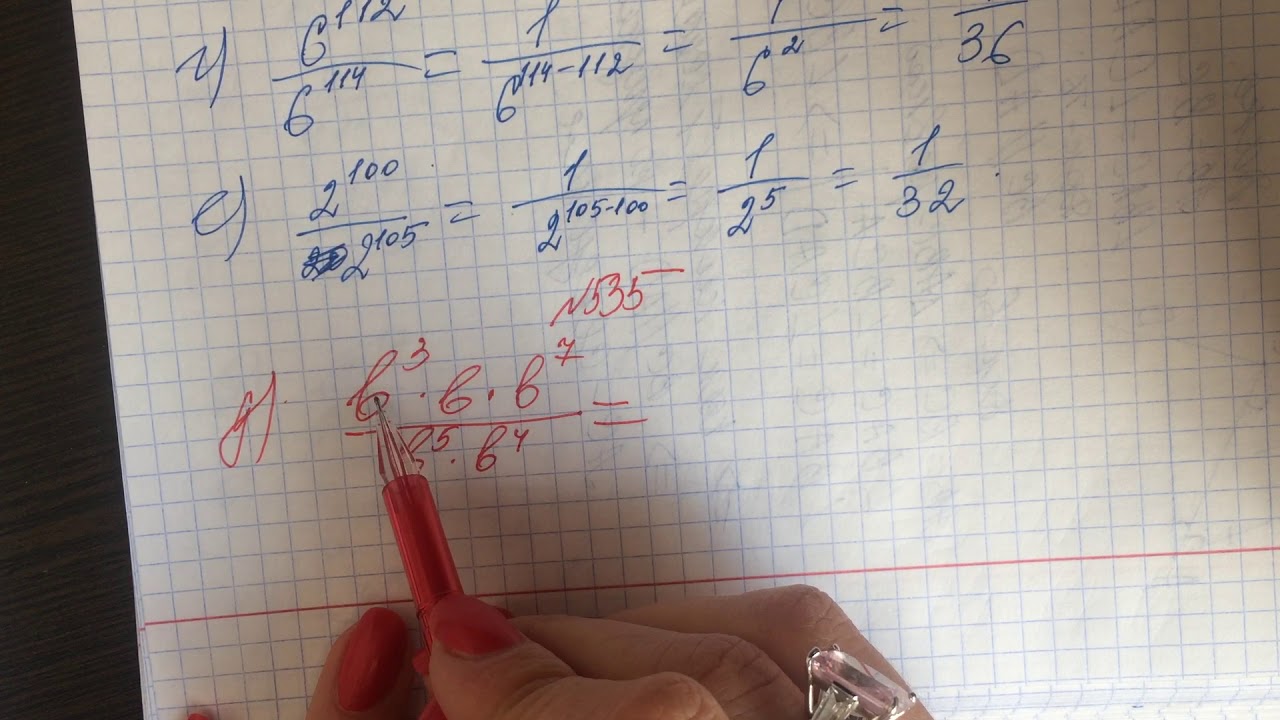 г) 6^112 / 6^114 = 1 / 6^(114-112) = 1 / 6^2 = 1 / 36
е) 2^100 / 2^105 = 1 / 2^(105-100) = 1 / 2^5 = 1 / 32.
№535
д) b^3 · b · b^7 / b^5 · b^4 =